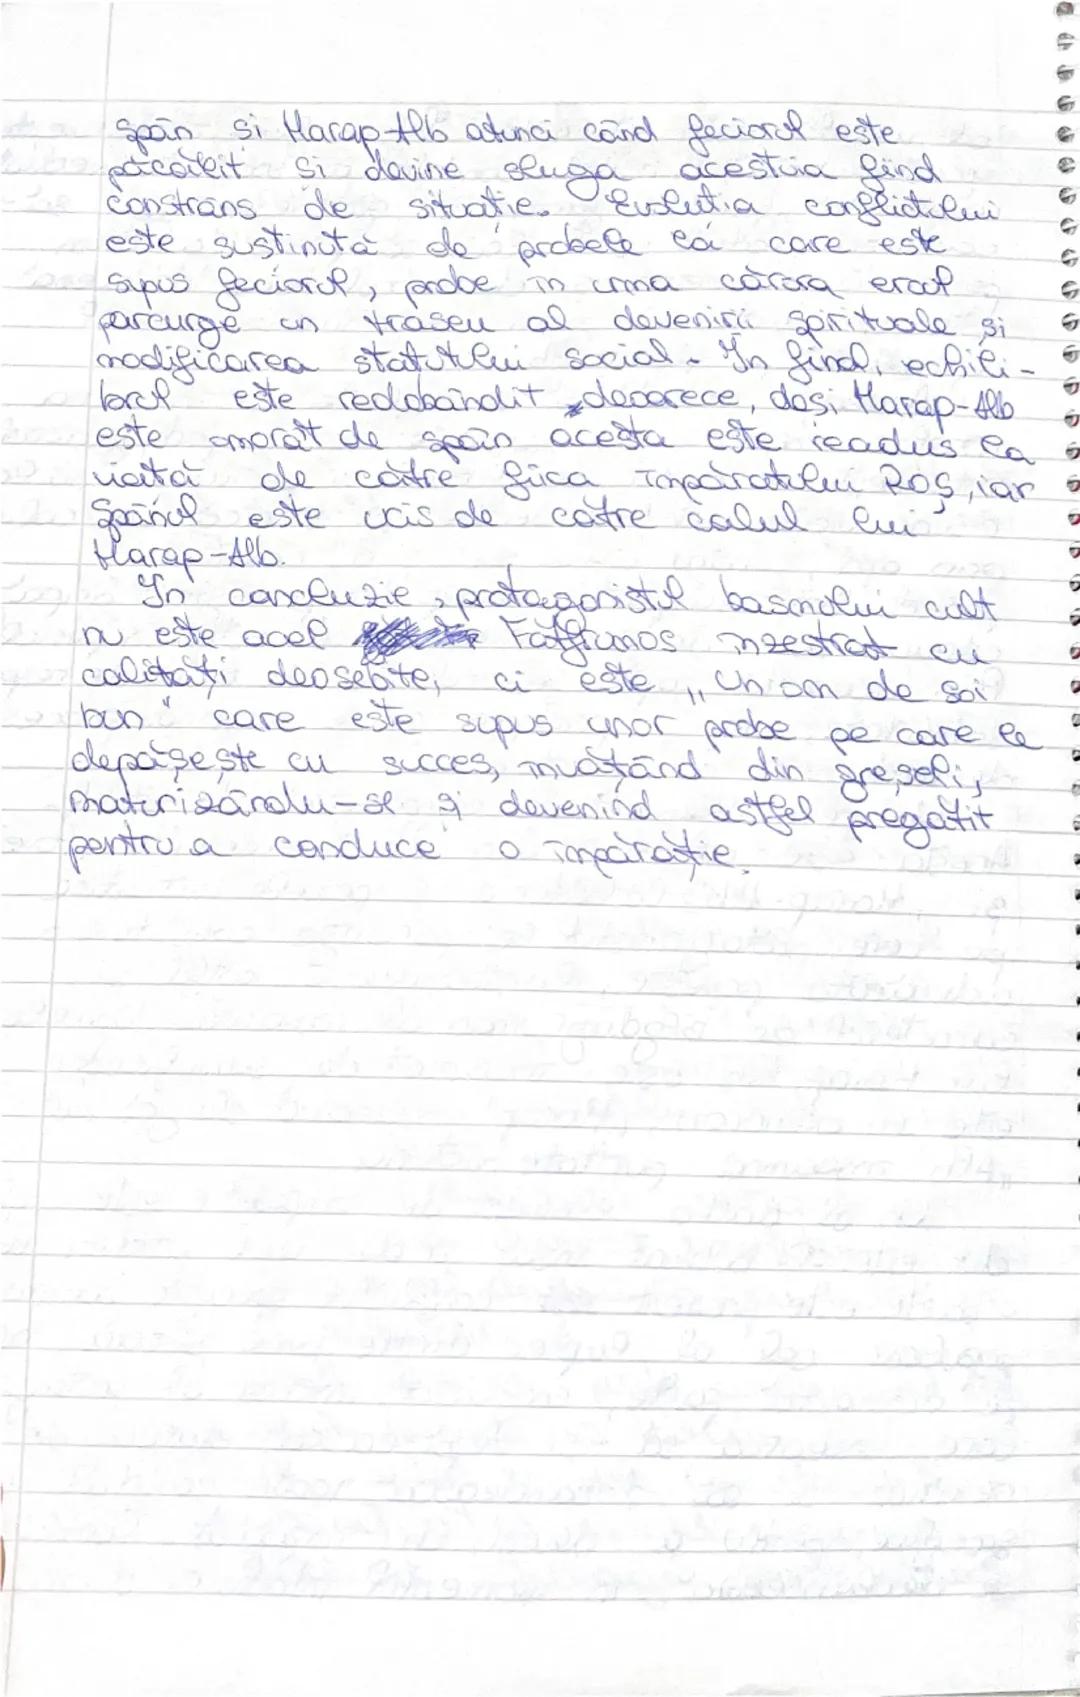 spân și Harap-Alb atunci când feciorul este
păcălit și devine sluga acestuia fiind
constrâns de situație. Evoluția conflictului
este susținută de probele la care este
supus feciorul, probe în urma cărora eroul
parcurge un traseu al devenirii spirituale și
modificarea statutului social. În final, echili-
brul este redobândit, deoarece, deși Harap-Alb
este omorât de spân acesta este readus la
viață de către fiica împăratului Roș, iar
Spânul este ucis de către calul lui
Harap-Alb.
În concluzie, protagonistul basmului cult
nu este acel Făt-Frumos înzestrat cu
calități deosebite, ci este „Un om de soi
bun" care este supus unor probe pe care le
depășește cu succes, învățând din greșeli,
maturizându-se și devenind astfel pregătit
pentru a conduce o împărăție.